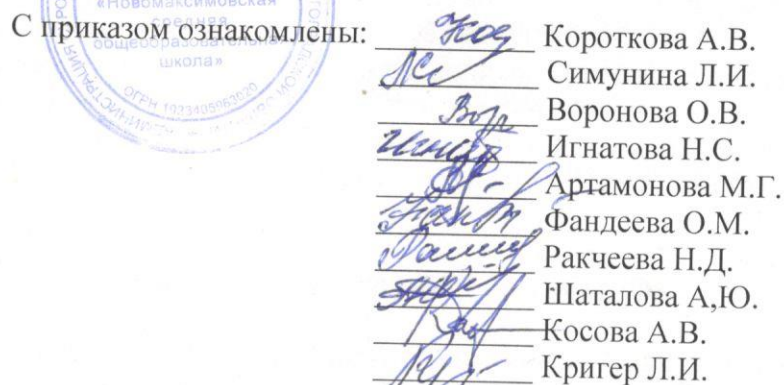 «Новомаксимовская
средняя
общеобразовательная
школа»
С приказом ознакомлены: Короткова А.В.
Симунина Л.И.
Воронова О.В.
Игнатова Н.С.
Артамонова М.Г.
Фандеева О.М.
Ракчеева Н.Д.
Шаталова А,Ю.
Косова А.В.
Кригер Л.И.